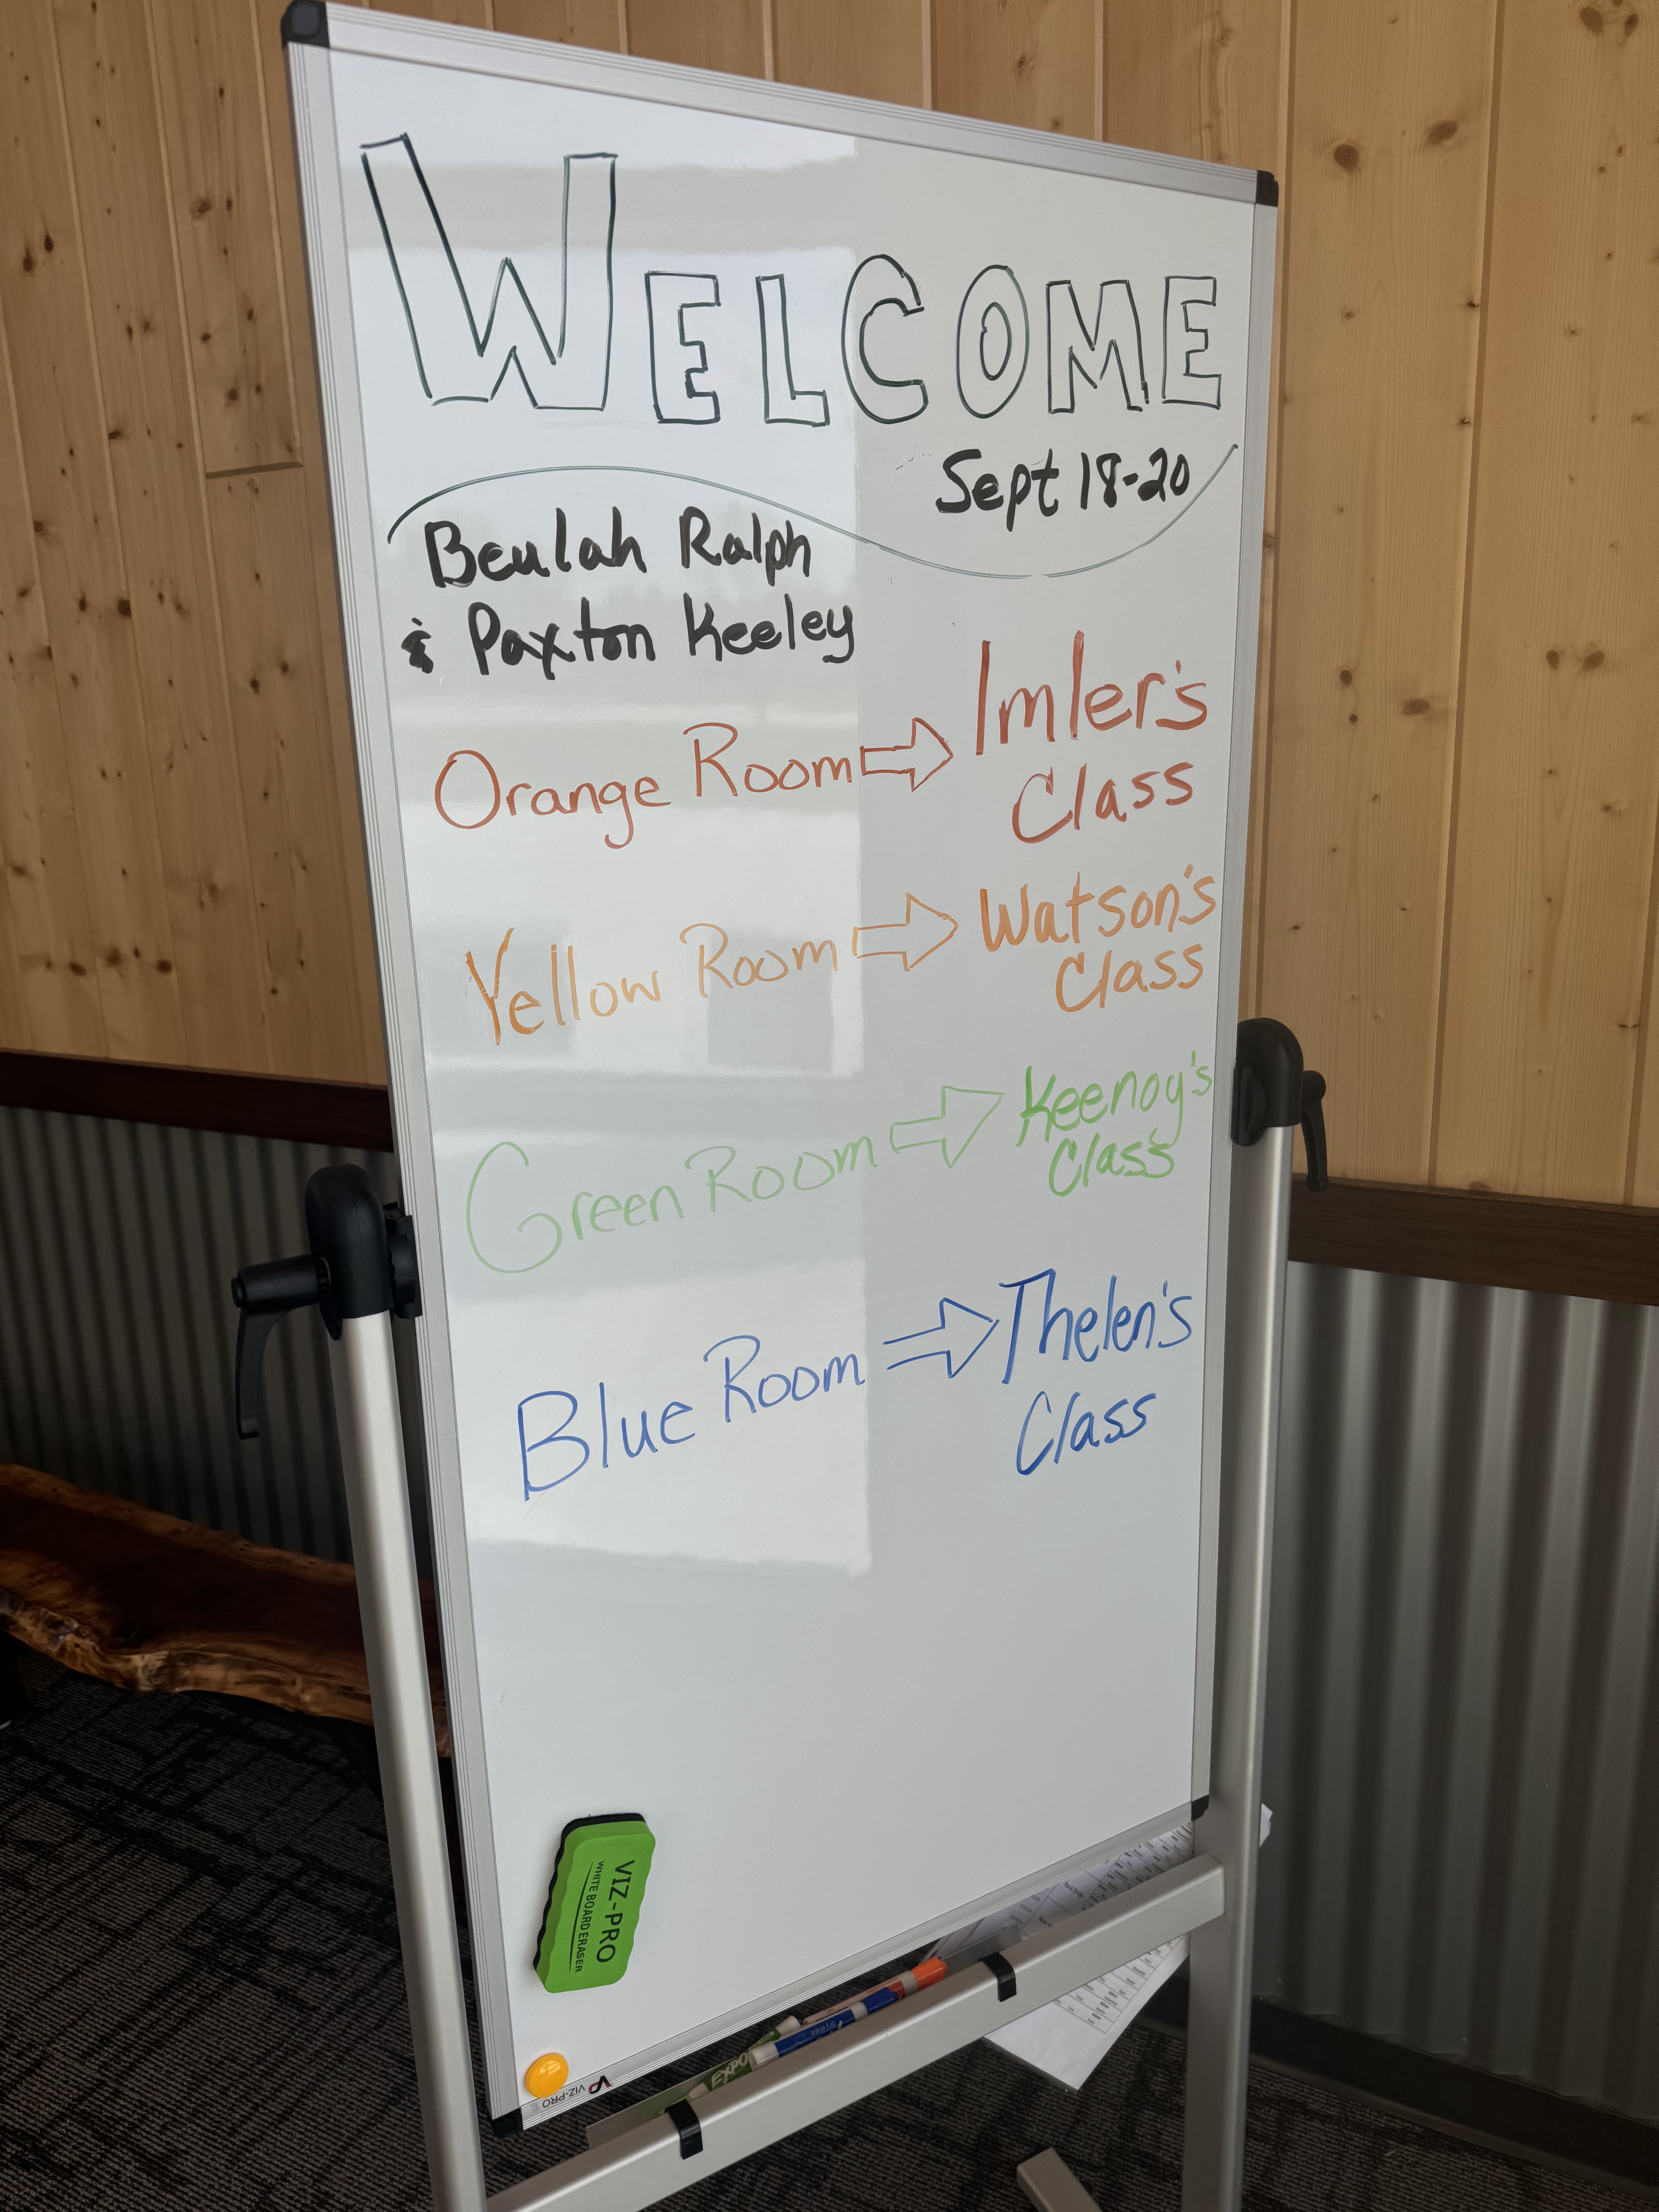 WELCOME
Sept 18-20
Beulah Ralph
& Paxton Keeley
Orange Room ⇨ Imler's
Class
Yellow Room ⇨ Watson's
Class
Green Room ⇨ Keenoy's
Class
Blue Room ⇨ Thelen's
Class
VIZ-PRO
WHITE BOARD ERASER
EXPO
VIZ-PRO